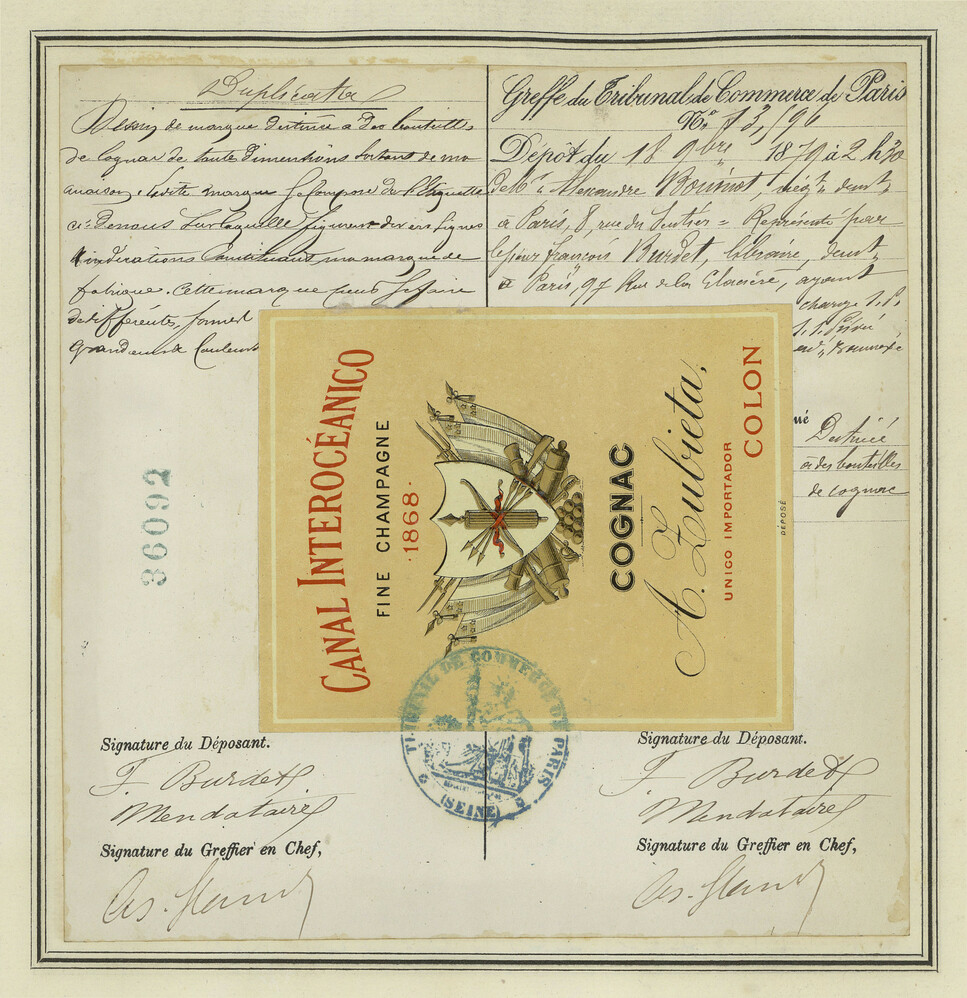 Duplicata
Dessin de marque destinée à des bouteilles
de Cognac de toute dimensions sortant de ma
maison, ladite marque se compose de l'étiquette
ci-dessous sur laquelle figurent divers signes
indications constituant ma marque de
fabrique. Cette marque peut se faire
de différentes formes
grandeurs & couleurs
36092
Greffe du Tribunal de Commerce de Paris
No. 13,196
Dépôt du 18 9bre 1879 à 2 h 30
de Mr Alexandre négt demt
à Paris, 8, rue du Sentier = Représenté par
le sieur François Burdet, libraire, demt
à Paris, 97 Rue de la Glacière, ayant
charge
Destinée
à des bouteilles
de cognac
CANAL INTEROCÉANICO
FINE CHAMPAGNE
·1868·
COGNAC
A. Zubieta,
UNICO IMPORTADOR
COLON
DÉPOSÉ
TRIBUNAL DE COMMERCE DE PARIS
(SEINE)
Signature du Déposant.
F. Burdet
Mendataire
Signature du Greffier en Chef,
Signature du Déposant.
F. Burdet
Mendataire
Signature du Greffier en Chef,